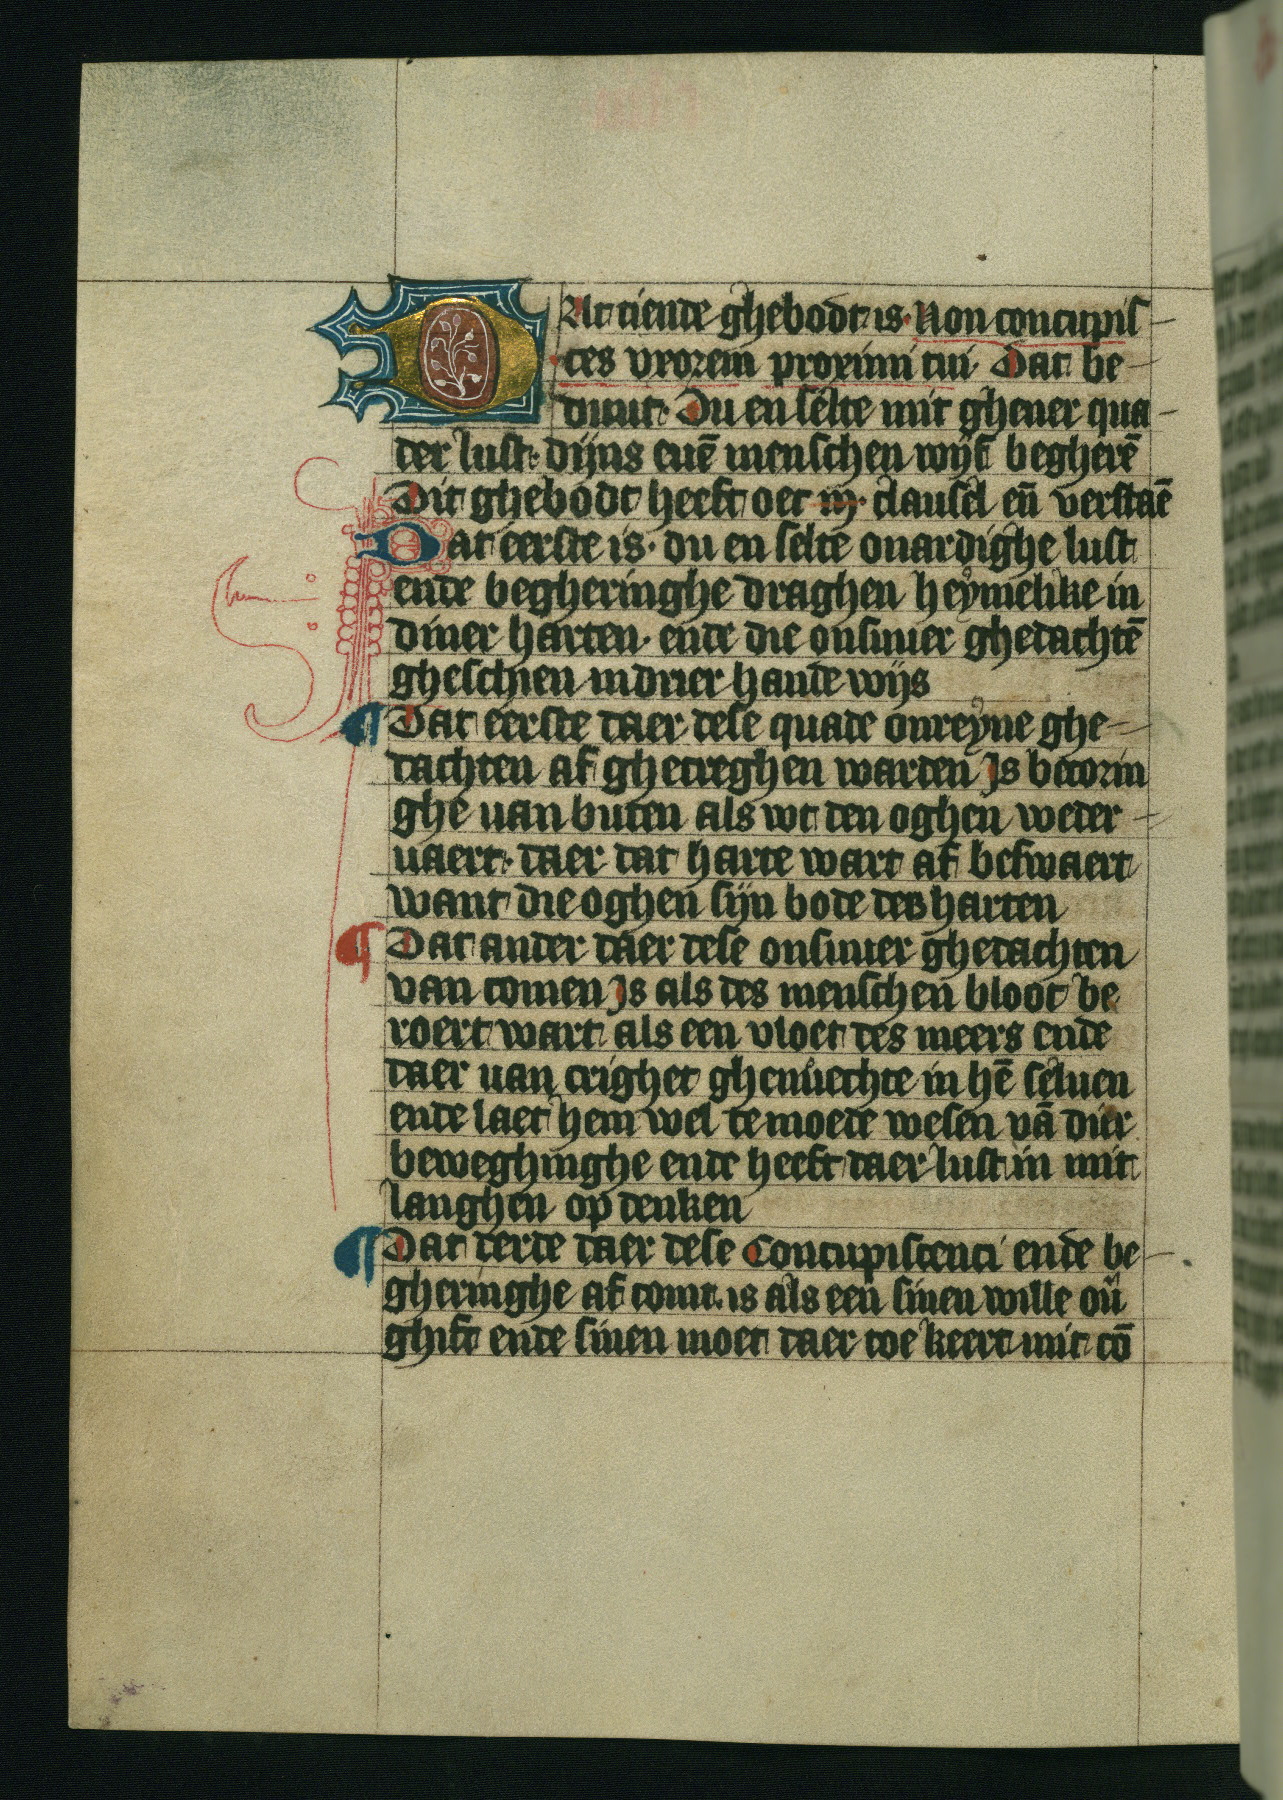 DAt tiende ghebodt is. Non concupis-
ces vxorem proximi tui. Dat be-
duut. Du en selte mit ghener qua-
der lust. dijns euē menschen wijf begherē
Dit ghebodt heeft oec iij. clausel eñ verstāē
Dat eerste is. du en selte onardighe lust
ende begheringhe draghen heymelike in
diner harten. ende die onsuuer ghedachtē
gheschien in drier hande wijs
¶ Dat eerste daer dese quade onreyne ghe-
dachten af ghecreghen warden Is becorin
ghe uan buten als wt den oghen weder-
uaert. daer dat harte wart af beswaert
want die oghen sijn bode des harten
¶ Dat ander daer dese onsuuer ghedachten
van comen Is als des menschen bloot be
roert wart als een vloet des meers ende
daer uan crighet ghenuechte in hē seluen
ende laet hem wel te moede wesen vā dier
beweghinghe ende heeft daer lust in mit
langhen op denken
¶ Dat derde daer dese Concupiscenci ende be-
gheringhe af comt. is als een sinen wille ou͛
ghift ende sinen moet daer toe keert mit cō